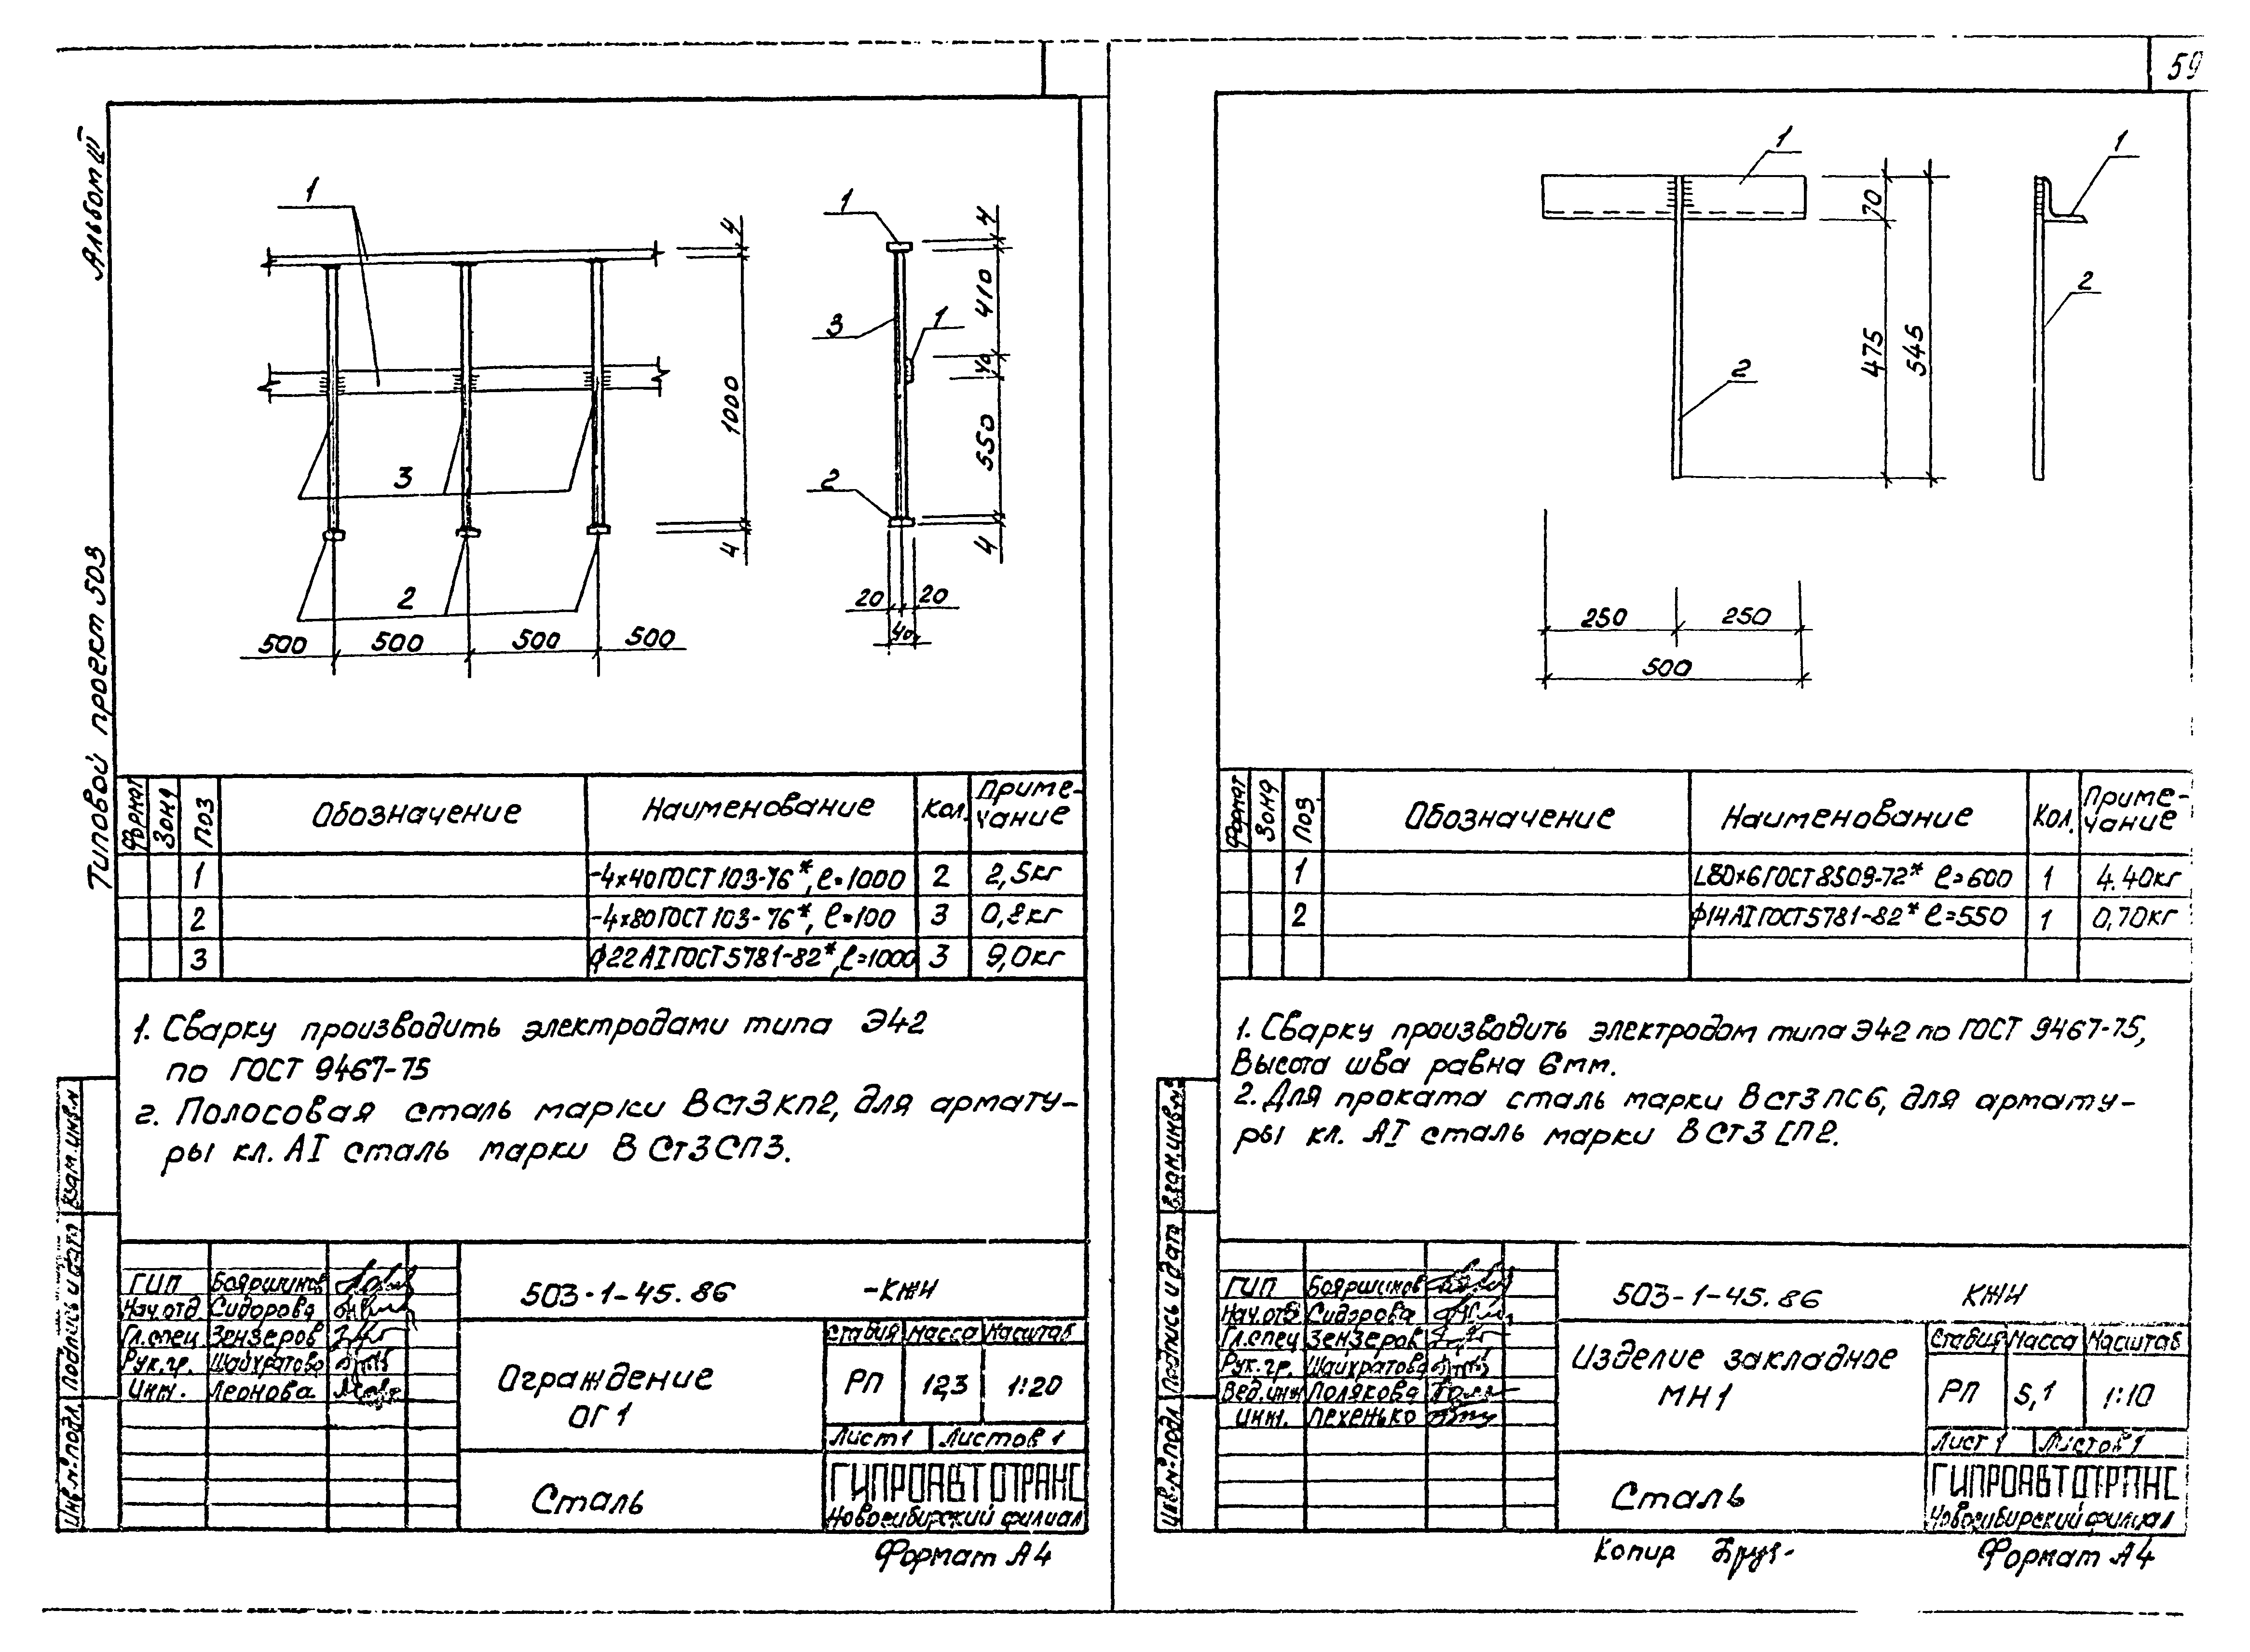 59
Альбом IV
Типовой проект 503
1
4
1000
4
3
2
500 500 500 500
1
4
410
3
1
40
550
2
4
20 20
40
Формат Зона Поз Обозначение Наименование Кол. Приме-чание
1 -4×40 ГОСТ 103-76*, ℓ=1000 2 2,5кг
2 -4×80 ГОСТ 103-76*, ℓ=100 3 0,8кг
3 ф22 АI ГОСТ 5781-82*, ℓ=1000 3 9,0кг
1. Сварку производить электродами типа Э42
по ГОСТ 9467-75
2. Полосовая сталь марки ВСт3кп2, для армату-
ры кл. АI сталь марки В Ст3 СП3.
Взам. инв.№
Подпись и дата
Инв.№ подл.
ГИП Бояршинов
Нач.отд. Сидорова
Гл.спец Зензеров
Рук.гр. Шайхратова
Инж. Леонова
503-1-45.86 -КЖИ
Ограждение
ОГ1
Стадия Масса Масштаб
РП 12,3 1:20
Лист 1 Листов 1
Сталь
ГИПРОАВТОТРАНС
Новосибирский филиал
Формат А4
1
70
475
545
2
250 250
500
1
2
Формат Зона Поз. Обозначение Наименование Кол. Приме-чание
1 L80×6 ГОСТ 8509-72* ℓ=600 1 4.40кг
2 ф14 АI ГОСТ 5781-82* ℓ=550 1 0,70кг
1. Сварку производить электродом типа Э42 по ГОСТ 9467-75,
Высота шва равна 6мм.
2. Для проката сталь марки ВСт3пс6, для армату-
ры кл. АI сталь марки В СТ3 СП2.
Взам.инв.№
Подпись и дата
Инв.№ подл.
ГИП Бояршинов
Нач.отд Сидорова
Гл.спец Зензеров
Рук.гр. Шайхратова
Вед.инж Полякова
Инж. Пехенько
503-1-45.86 КЖИ
Изделие закладное
МН1
Стадия Масса Масштаб
РП 5,1 1:10
Лист 1 Листов 1
Сталь
ГИПРОАВТОТРАНС
Новосибирский филиал
Копир
Формат А4